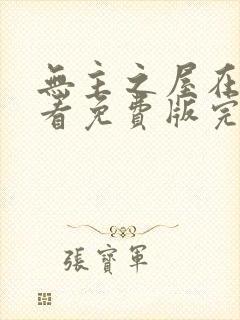 無主之屋在
看免費版完
張寶軍